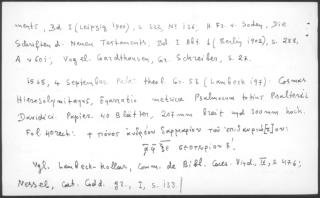 ments, Bd I (Leipzig 1900), S. 222, Nº 126, H. Fr. v. Soden, Die
Schriften d. Neuen Testaments; Bd I Abt. 1 (Berlin 1902), S. 288,
A 601; Vogel-Gardthausen, Gr. Schreiber, S. 27.
1568, 4 September Pal: theol. Gr. 52 (Lambeck 197): Cosmas
Hierosolymitanus, Exynratio metrica Psalmorum totius Psalterii
Davidici. Papier. 40 Blätter, 207 mm breit und 300 mm hoch.
Fol 40 rect: +
σεπτεμβρίου δ.
Vgl. Lambeck-Kollar, Comm. de Bibl. Caes. Vind., IV, S 476;
Nessel, Cat. Codd. gr., I, S. 133